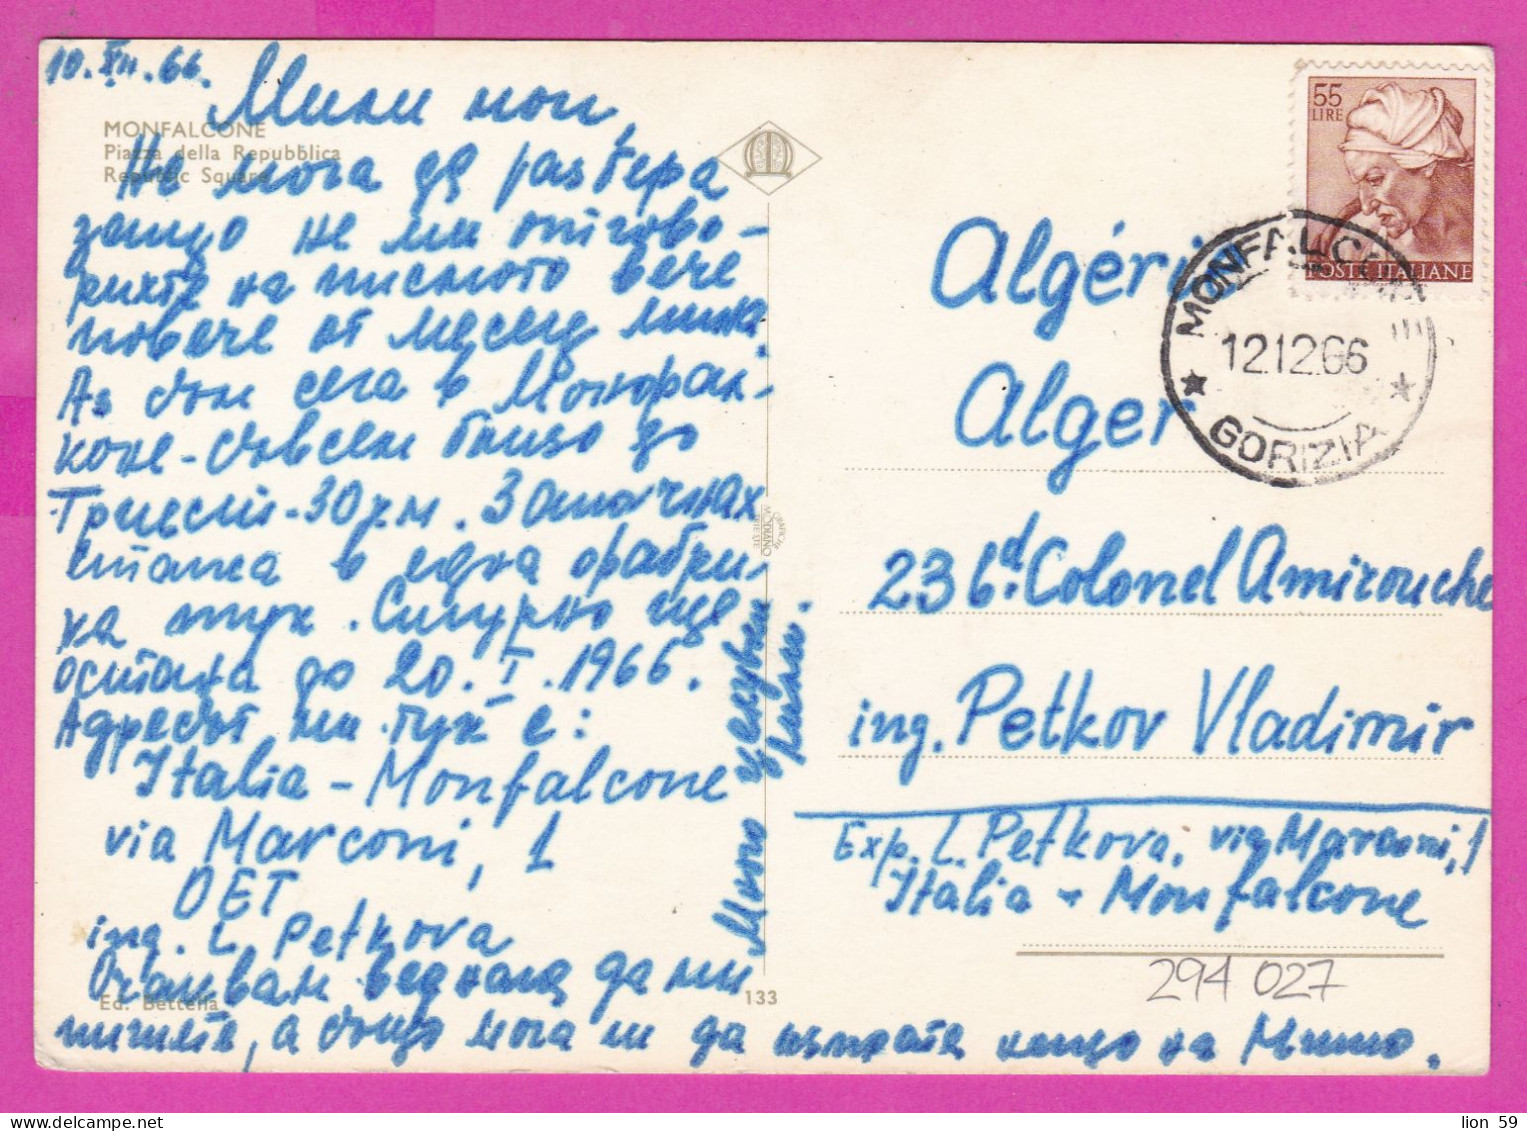 10.XII.66.
Мили мои,
MONFALCONE
Piazza della Repubblica
Republic Square
Не мога да разбера
защо не ми отгово-
рихте на писмото вече
повече от месец мина.
Аз съм сега в Монфал-
коне - съвсем близо до
Триест - 30 км. Започнах
стажа в една фабри-
ка тук. Сигурно ще
остана до 20.I.1966.
Адресът ми тук е:
Italia - Monfalcone
via Marconi, 1
OET
ing. L. Petkova
Очаквам веднага да ми
пишете, а също мога ли да изпратя нещо на Мишо.
Много целувки
Лили.
Ed. Bettella
133
GRAFICHE
MODIANO
TRIESTE
55
LIRE
POSTE ITALIANE
MONFALCONE
12.12.66
GORIZIA
Algérie
Alger
23 bd. Colonel Amirouche
ing. Petkov Vladimir
Exp. L. Petkova, via Marconi, 1
Italia - Monfalcone
294 027
lion 59